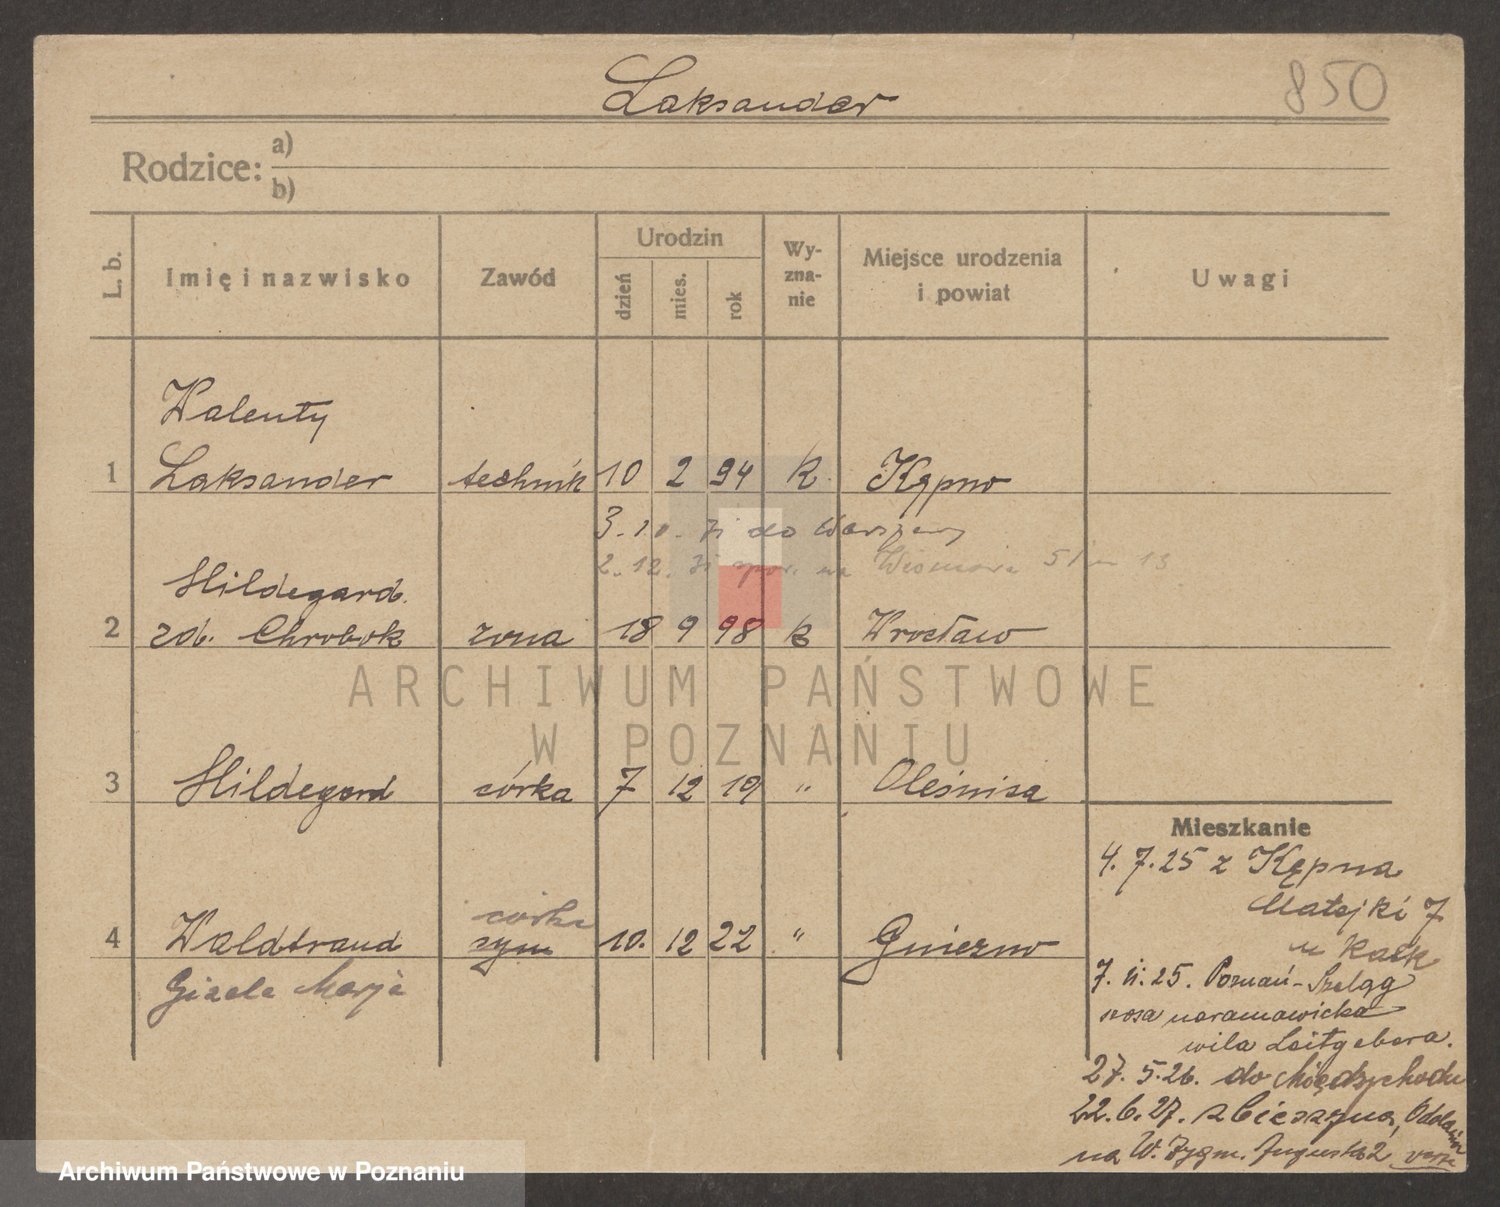 Laksander
850
Rodzice: a)
b)
L. b.
Imię i nazwisko
Zawód
Urodzin
dzień
mies.
rok
Wy-
zna-
nie
Miejsce urodzenia
i powiat
Uwagi
Walenty
1 Laksander technik 10 2 94 k. Kępno
3.10. do Warszawy
2.12. na 13
Hildegard
2 zd. Chrobok żona 18 9 98 k Wrocław
3 Hildegard córka 7 12 19 " Oleśnica
córka
4 Waldtraud syn 10. 12 22 " Gniezno
Gizela Marja
Mieszkanie
4.7.25 z Kępna
Matejki 7
u Kaek
7.11.25. Poznań-Szeląg
szosa naramowicka
wila Leitgebera.
27.5.26. do Międzychodu
22.6.27. z Cieszyna, Odolanów
na W. Zygm. Augusta 2 verte
ARCHIWUM PAŃSTWOWE
W POZNANIU
Archiwum Państwowe w Poznaniu